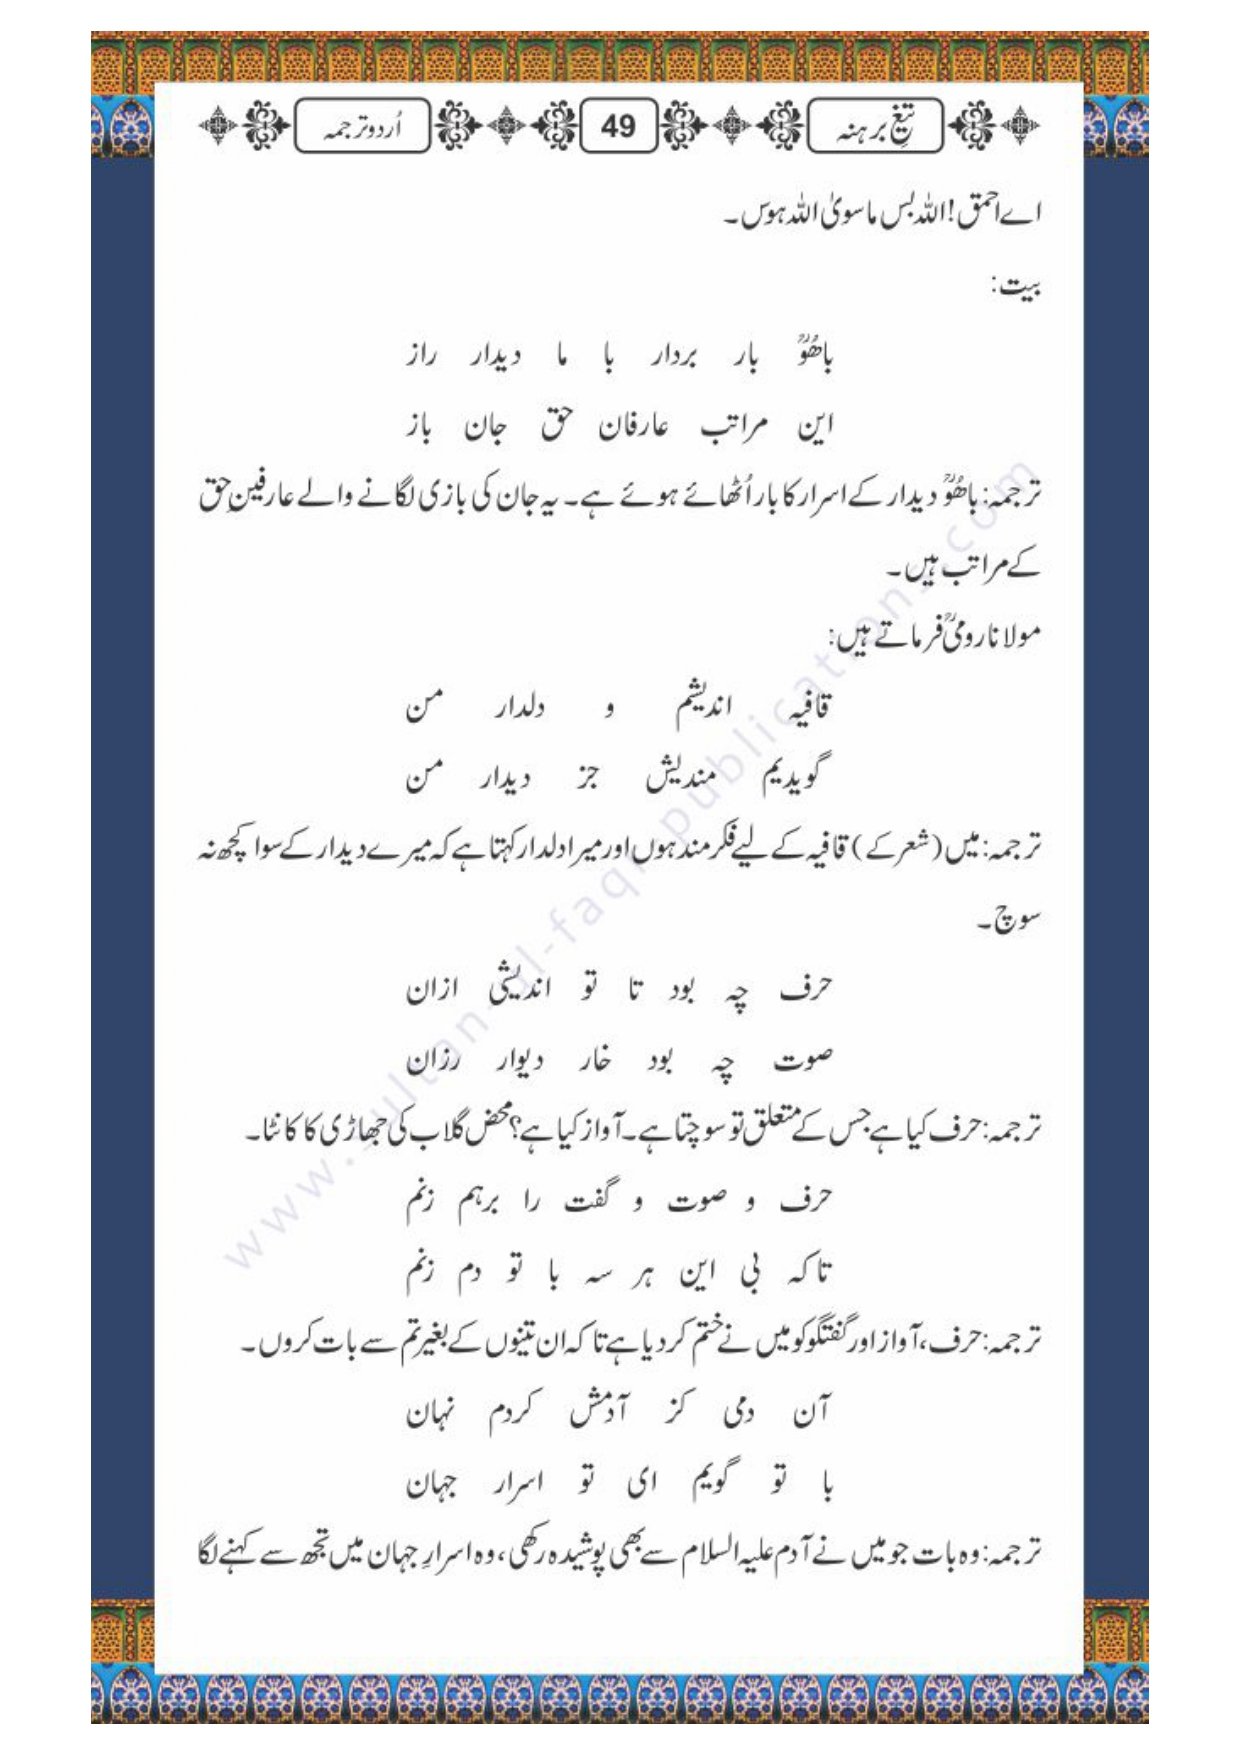 تیغِ برہنہ
49
اُردو ترجمہ
اے احمق! اللہ بس ماسویٰ اللہ ہوس۔
بیت:
باھُوؒ بار بردار با ما دیدار راز
این مراتب عارفان حق جان باز
ترجمہ: باھُوؒ دیدار کے اسرار کا بار اُٹھائے ہوئے ہے۔ یہ جان کی بازی لگانے والے عارفینِ حق
کے مراتب ہیں۔
مولانا رومیؒ فرماتے ہیں:
قافیہ اندیشم و دلدار من
گویدیم مندیش جز دیدار من
ترجمہ: میں (شعر کے) قافیہ کے لیے فکرمند ہوں اور میرا دلدار کہتا ہے کہ میرے دیدار کے سوا کچھ نہ
سوچ۔
حرف چہ بود تا تو اندیشی ازان
صوت چہ بود خار دیوار رزان
ترجمہ: حرف کیا ہے جس کے متعلق تو سوچتا ہے۔ آواز کیا ہے؟ محض گلاب کی جھاڑی کا کانٹا۔
حرف و صوت و گفت را برہم زنم
تا کہ بی این ہر سہ با تو دم زنم
ترجمہ: حرف، آواز اور گفتگو کو میں نے ختم کر دیا ہے تا کہ ان تینوں کے بغیر تم سے بات کروں۔
آن دمی کز آدمش کردم نہان
با تو گویم ای تو اسرار جہان
ترجمہ: وہ بات جو میں نے آدم علیہ السلام سے بھی پوشیدہ رکھی، وہ اسرارِ جہان میں تجھ سے کہنے لگا
www.sultan-ul-faqr-publications.com